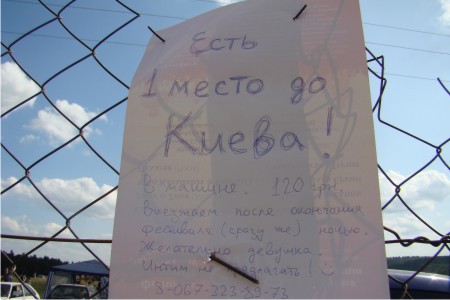 Есть
1 место до
Киева!
В машине. 120 грн.
Выезжаем после окончания
фестиваля (сразу же) ночью.
Желательно девушка.
Интим не предлагать!
8-067-323-89-73